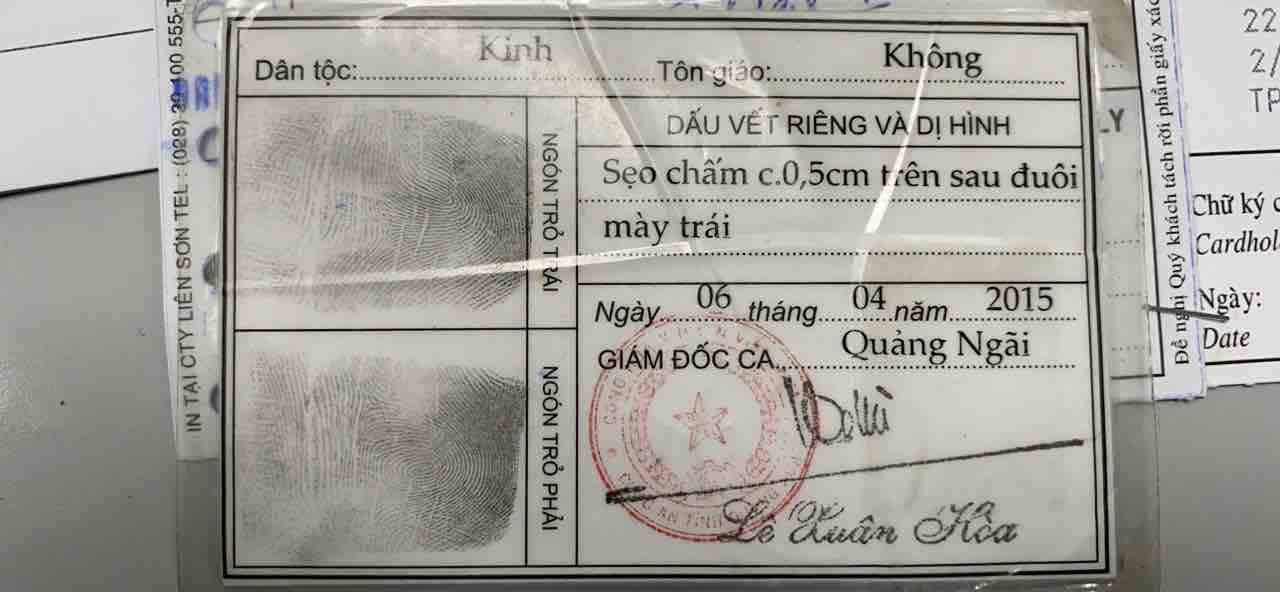 Dân tộc: Kinh Tôn giáo: Không
NGÓN TRỎ TRÁI
DẤU VẾT RIÊNG VÀ DỊ HÌNH
Sẹo chấm c.0,5cm trên sau đuôi
mày trái
Ngày 06 tháng 04 năm 2015
GIÁM ĐỐC CA Quảng Ngãi
NGÓN TRỎ PHẢI
Lê Xuân Hòa
IN TẠI CTY LIÊN SƠN TEL : (028) 39 100 555
LY
Đề nghị Quý khách tách rời phần giấy xác
22
2/
TP
Chữ ký c
Cardhol
Ngày:
Date